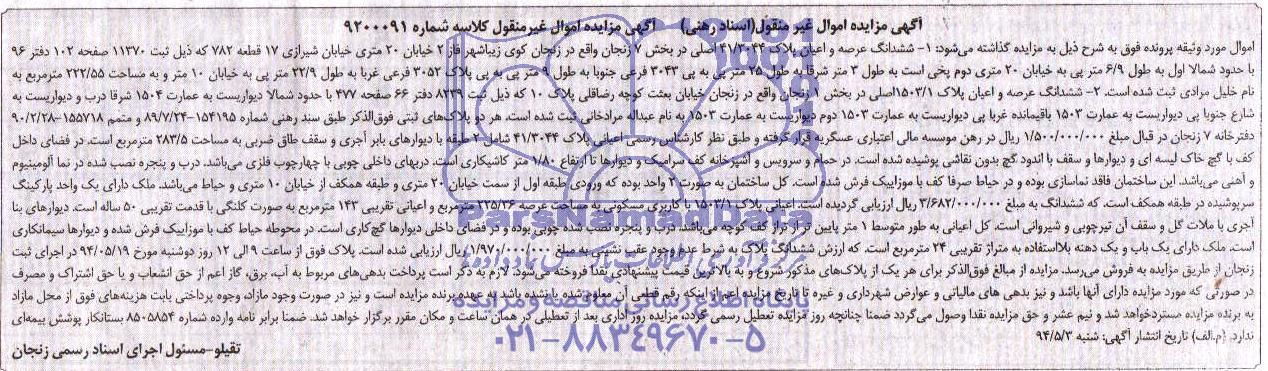 آگهی مزایده اموال غیر منقول(اسناد رهنی) آگهی مزایده اموال غیرمنقول کلاسه شماره ۹۲۰۰۰۹۱
اموال مورد وثیقه پرونده فوق به شرح ذیل به مزایده گذاشته می‌شود: ۱- ششدانگ عرصه و اعیان پلاک ۴۱/۳۰۴۴ اصلی در بخش ۷ زنجان واقع در زنجان کوی زیباشهر فاز ۲ خیابان ۲۰ متری خیابان شیرازی ۱۷ قطعه ۷۸۲ که ذیل ثبت ۱۱۳۷۰ صفحه ۱۰۲ دفتر ۹۶
با حدود شمالا اول به طول ۶/۹ متر پی به خیابان ۲۰ متری دوم پخی است به طول ۳ متر شرقا به طول ۲۵ متر پی به پی ۳۰۴۳ فرعی جنوبا به طول ۹ متر پی به پی پلاک ۳۰۵۳ فرعی غربا به طول ۲۲/۹ متر پی به خیابان ۱۰ متر و به مساحت ۲۲۲/۵۵ مترمربع به
نام خلیل مرادی ثبت شده است. ۲- ششدانگ عرصه و اعیان پلاک ۱۵۰۳/۱اصلی در بخش ۱ زنجان واقع در زنجان خیابان بعثت کوچه رضاقلی پلاک ۱۰ که ذیل ثبت ۸۲۳۹ دفتر ۶۶ صفحه ۴۷۷ با حدود شمالا دیواریست به عمارت ۱۵۰۴ شرقا درب و دیواریست به
شارع جنوبا پی دیواریست به عمارت ۱۵۰۳ باقیمانده غربا پی دیواریست به عمارت ۱۵۰۳ دوم دیواریست به عمارت ۱۵۰۳ به نام عبداله مرادخانی ثبت شده است. هر دو پلاک‌های ثبتی فوق‌الذکر طبق سند رهنی شماره ۱۵۴۱۹۵-۸۹/۷/۲۴ و متمم ۱۵۵۷۱۸-۹۰/۲/۲۸
دفترخانه ۷ زنجان در قبال مبلغ ۱/۵۰۰/۰۰۰/۰۰۰ ریال در رهن موسسه مالی اعتباری عسگریه قرار گرفته و طبق نظر کارشناس رسمی اعیانی پلاک ۴۱/۳۰۴۴ شامل ۲ طبقه با دیوارهای باربر آجری و سقف طاق ضربی به مساحت ۲۸۳/۵ مترمربع است. در فضای داخل
کف با گچ خاک لیسه ای و دیوارها و سقف با اندود گچ بدون نقاشی پوشیده شده است. در حمام و سرویس و آشپزخانه کف سرامیک و دیوارها تا ارتفاع ۱/۸۰ متر کاشیکاری است. دربهای داخلی چوبی با چهارچوب فلزی می‌باشد. درب و پنجره نصب شده در نما آلومینیوم
و آهنی می‌باشد. این ساختمان فاقد نماسازی بوده و در حیاط صرفا کف با موزاییک فرش شده است. کل ساختمان به صورت ۲ واحد بوده که ورودی طبقه اول از سمت خیابان ۲۰ متری و طبقه همکف از خیابان ۱۰ متری و حیاط می‌باشد. ملک دارای یک واحد پارکینگ
سرپوشیده در طبقه همکف است. که ششدانگ به مبلغ ۳/۶۸۲/۰۰۰/۰۰۰ ریال ارزیابی گردیده است. اعیانی پلاک ۱۵۰۳/۱ با کاربری مسکونی به مساحت عرصه ۲۲۵/۳۶ مترمربع و اعیانی تقریبی ۱۴۳ مترمربع به صورت کلنگی با قدمت تقریبی ۵۰ ساله است. دیوارهای بنا
آجری با ملات گل و سقف آن تیرچوبی و شیروانی است. کل اعیانی به طور متوسط ۱ متر پایین تر از تراز کف کوچه می‌باشد. درب و پنجره نصب شده چوبی بوده و در فضای داخلی دیوارها گچ‌کاری است. در محوطه حیاط کف با موزاییک فرش شده و دیوارها سیمانکاری
است. ملک دارای یک باب و یک دهنه بلااستفاده به متراژ تقریبی ۲۴ مترمربع است. که ارزش ششدانگ پلاک به شرط عدم وجود عقب نشینی به مبلغ ۱/۹۷۰/۰۰۰/۰۰۰ ریال ارزیابی شده است. پلاک فوق از ساعت ۹ الی ۱۲ روز دوشنبه مورخ ۹۴/۰۵/۱۹ در اجرای ثبت
زنجان از طریق مزایده به فروش می‌رسد. مزایده از مبالغ فوق‌الذکر برای هر یک از پلاک‌های مذکور شروع و به بالاترین قیمت پیشنهادی نقدا فروخته می‌شود. لازم به ذکر است پرداخت بدهی‌های مربوط به آب، برق، گاز اعم از حق انشعاب و یا حق اشتراک و مصرف
در صورتی که مورد مزایده دارای آنها باشد و نیز بدهی های مالیاتی و عوارض شهرداری و غیره تا تاریخ مزایده اعم از اینکه رقم قطعی آن معلوم شده یا نشده باشد به عهده برنده مزایده است و نیز در صورت وجود مازاد، وجوه پرداختی بابت هزینه‌های فوق از محل مازاد
به برنده مزایده مسترد خواهد شد و نیم عشر و حق مزایده نقدا وصول می‌گردد ضمنا چنانچه روز مزایده تعطیل رسمی گردد، مزایده روز اداری بعد از تعطیلی در همان ساعت و مکان مقرر برگزار خواهد شد. ضمنا برابر نامه وارده شماره ۸۵۰۵۸۵۴ بستانکار پوشش بیمه‌ای
ندارد. (م.الف) تاریخ انتشار آگهی: شنبه ۹۴/۵/۳
تقیلو-مسئول اجرای اسناد رسمی زنجان
ParsNamadData
پایگاه اطلاع رسانی مناقصه و مزایده
۰۲۱-۸۸۳۴۹۶۷۰-۵